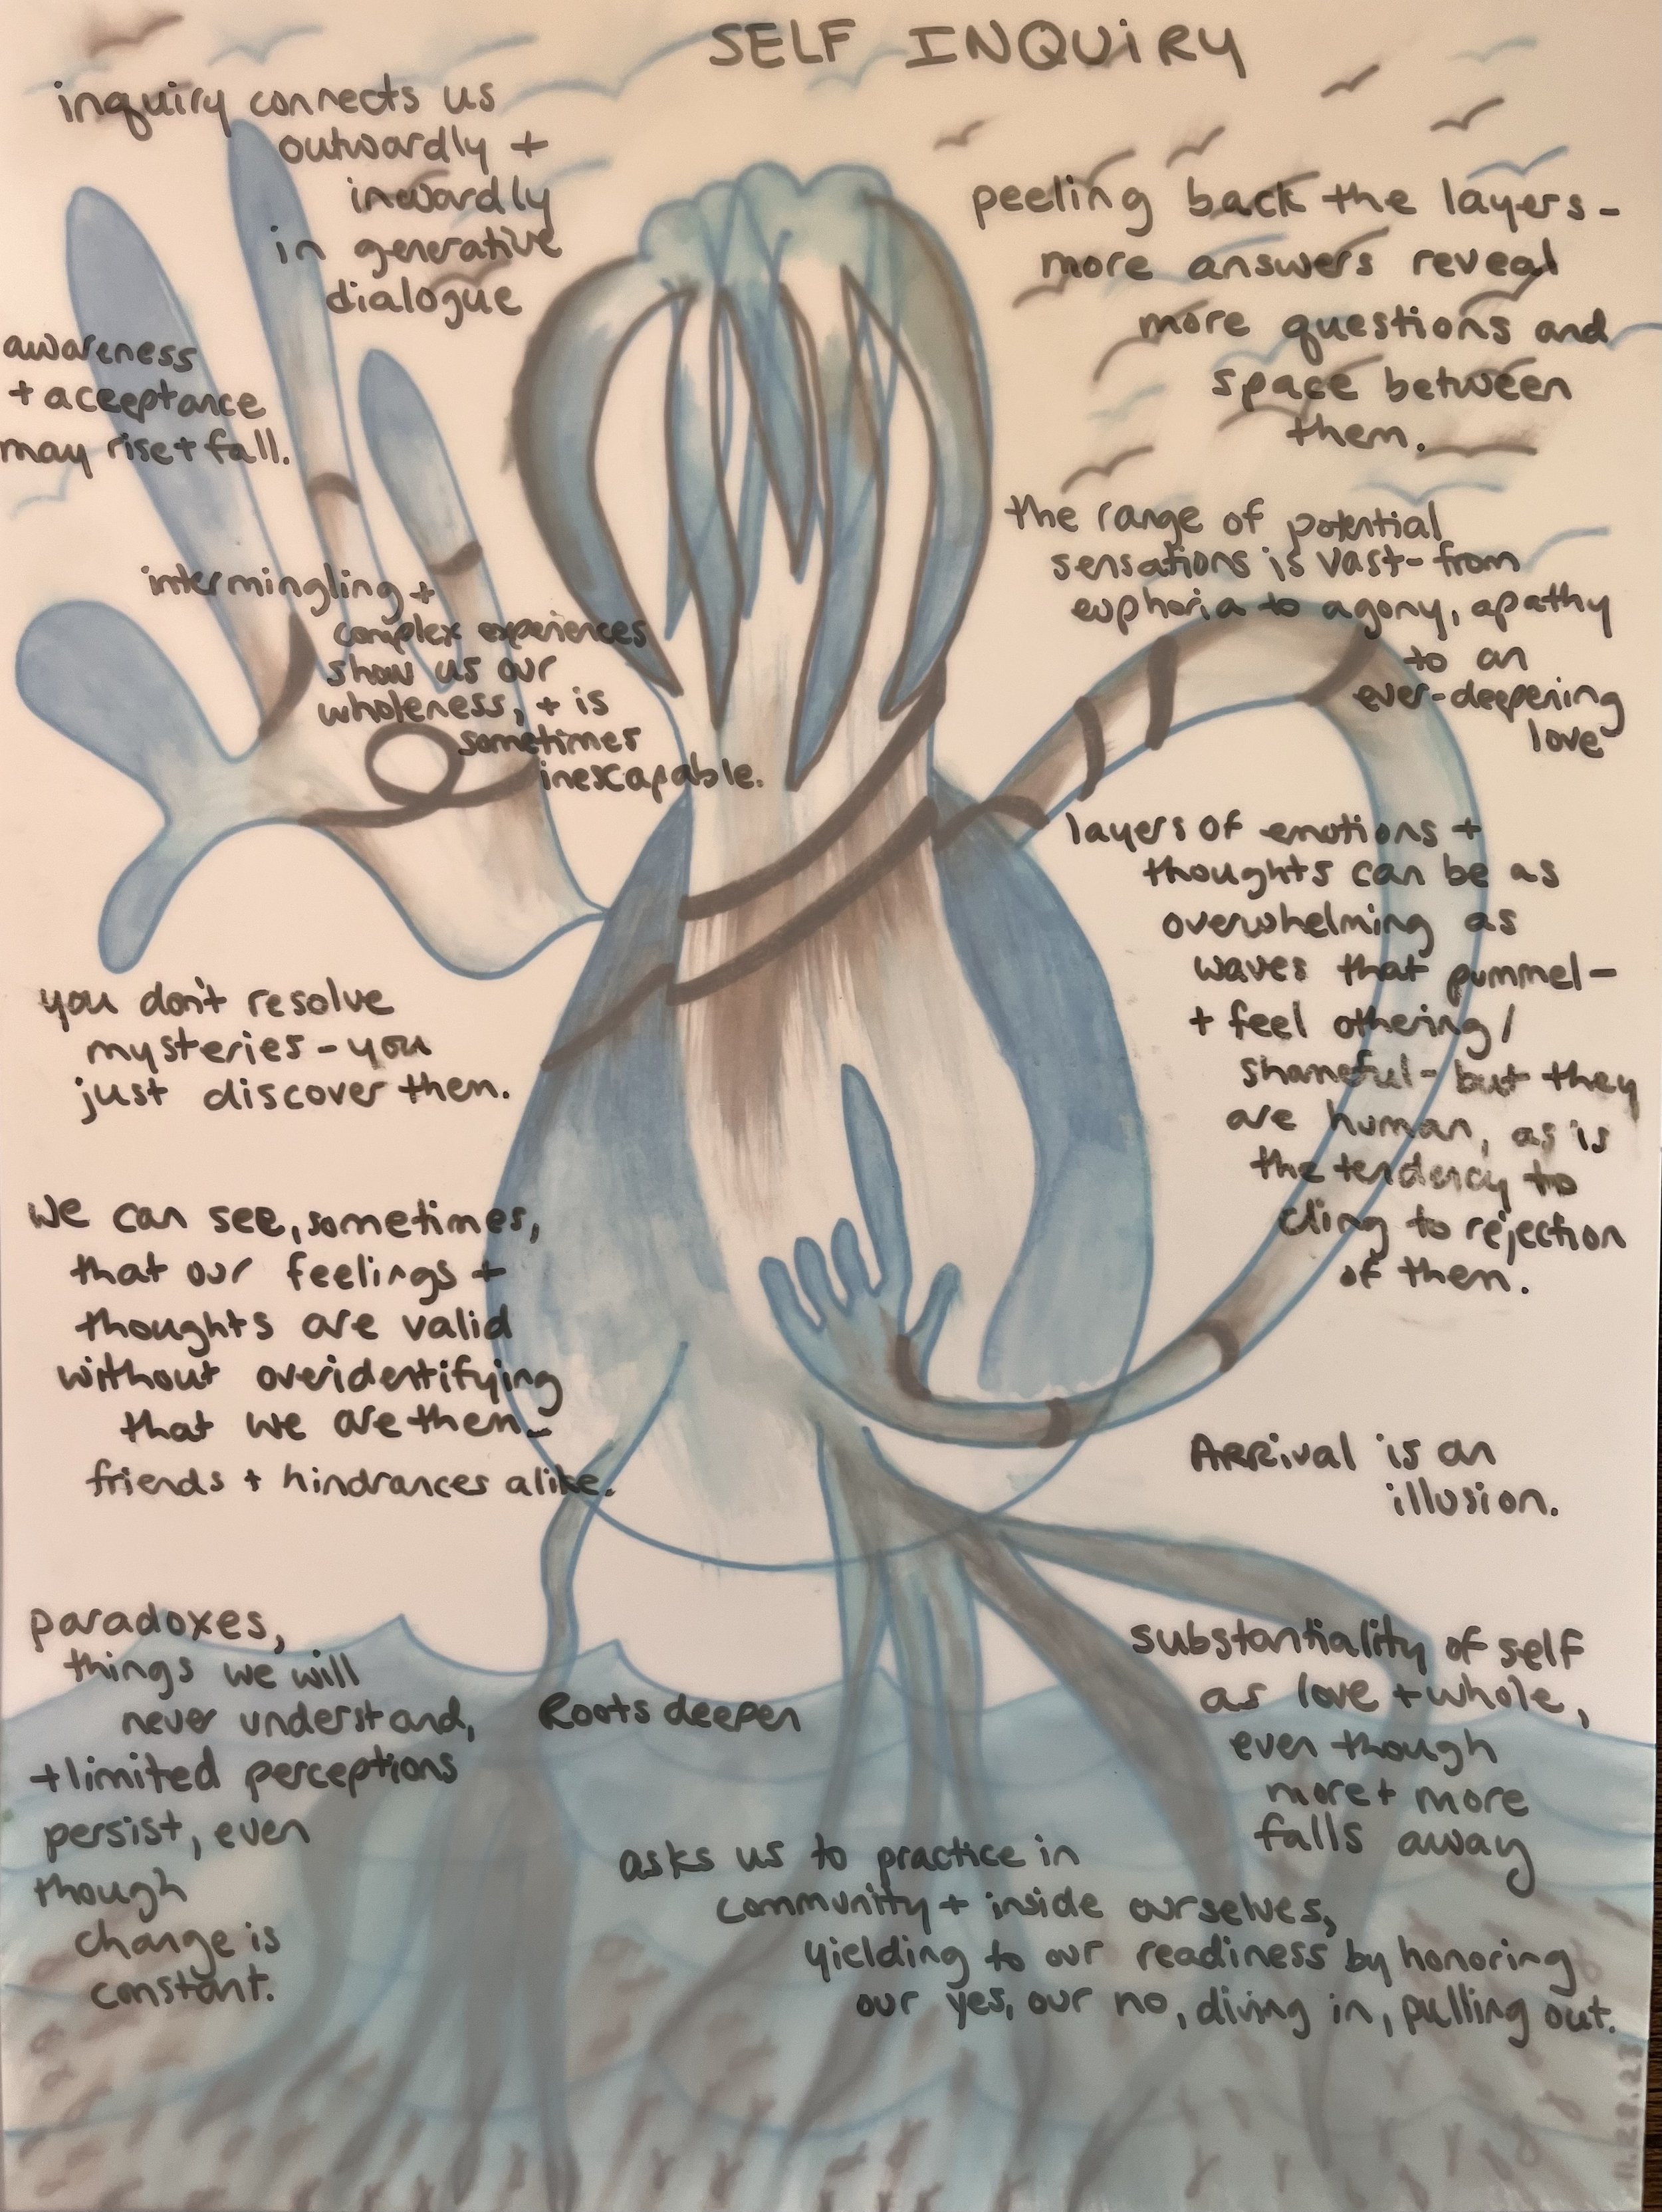 SELF INQUiRY
inquiry connects us
outwardly +
inwardly
in generative
dialogue
awareness
+ aceeptance
may rise + fall.
intermingling +
complex experiences
show us our
wholeness, + is
sometimes
inescapable.
you don't resolve
mysteries - you
just discover them.
we can see, sometimes,
that our feelings +
thoughts are valid
without overidentifying
that we are them -
friends + hindrances alike.
paradoxes,
things we will
never understand,
+ limited perceptions
persist, even
though
change is
constant.
peeling back the layers -
more answers reveal
more questions and
space between
them.
the range of potential
sensations is vast - from
euphoria to agony, apathy
to an
ever-deepening
love
layers of emotions +
thoughts can be as
overwhelming as
waves that pummel -
+ feel othering/
shameful - but they
are human, as is
the tendency to
cling to rejection
of them.
Arrival is an
illusion.
substantiality of self
as love + whole,
even though
more + more
falls away
Roots deepen
asks us to practice in
community + inside ourselves,
yielding to our readiness by honoring
our yes, our no, diving in, pulling out.
11.28.23